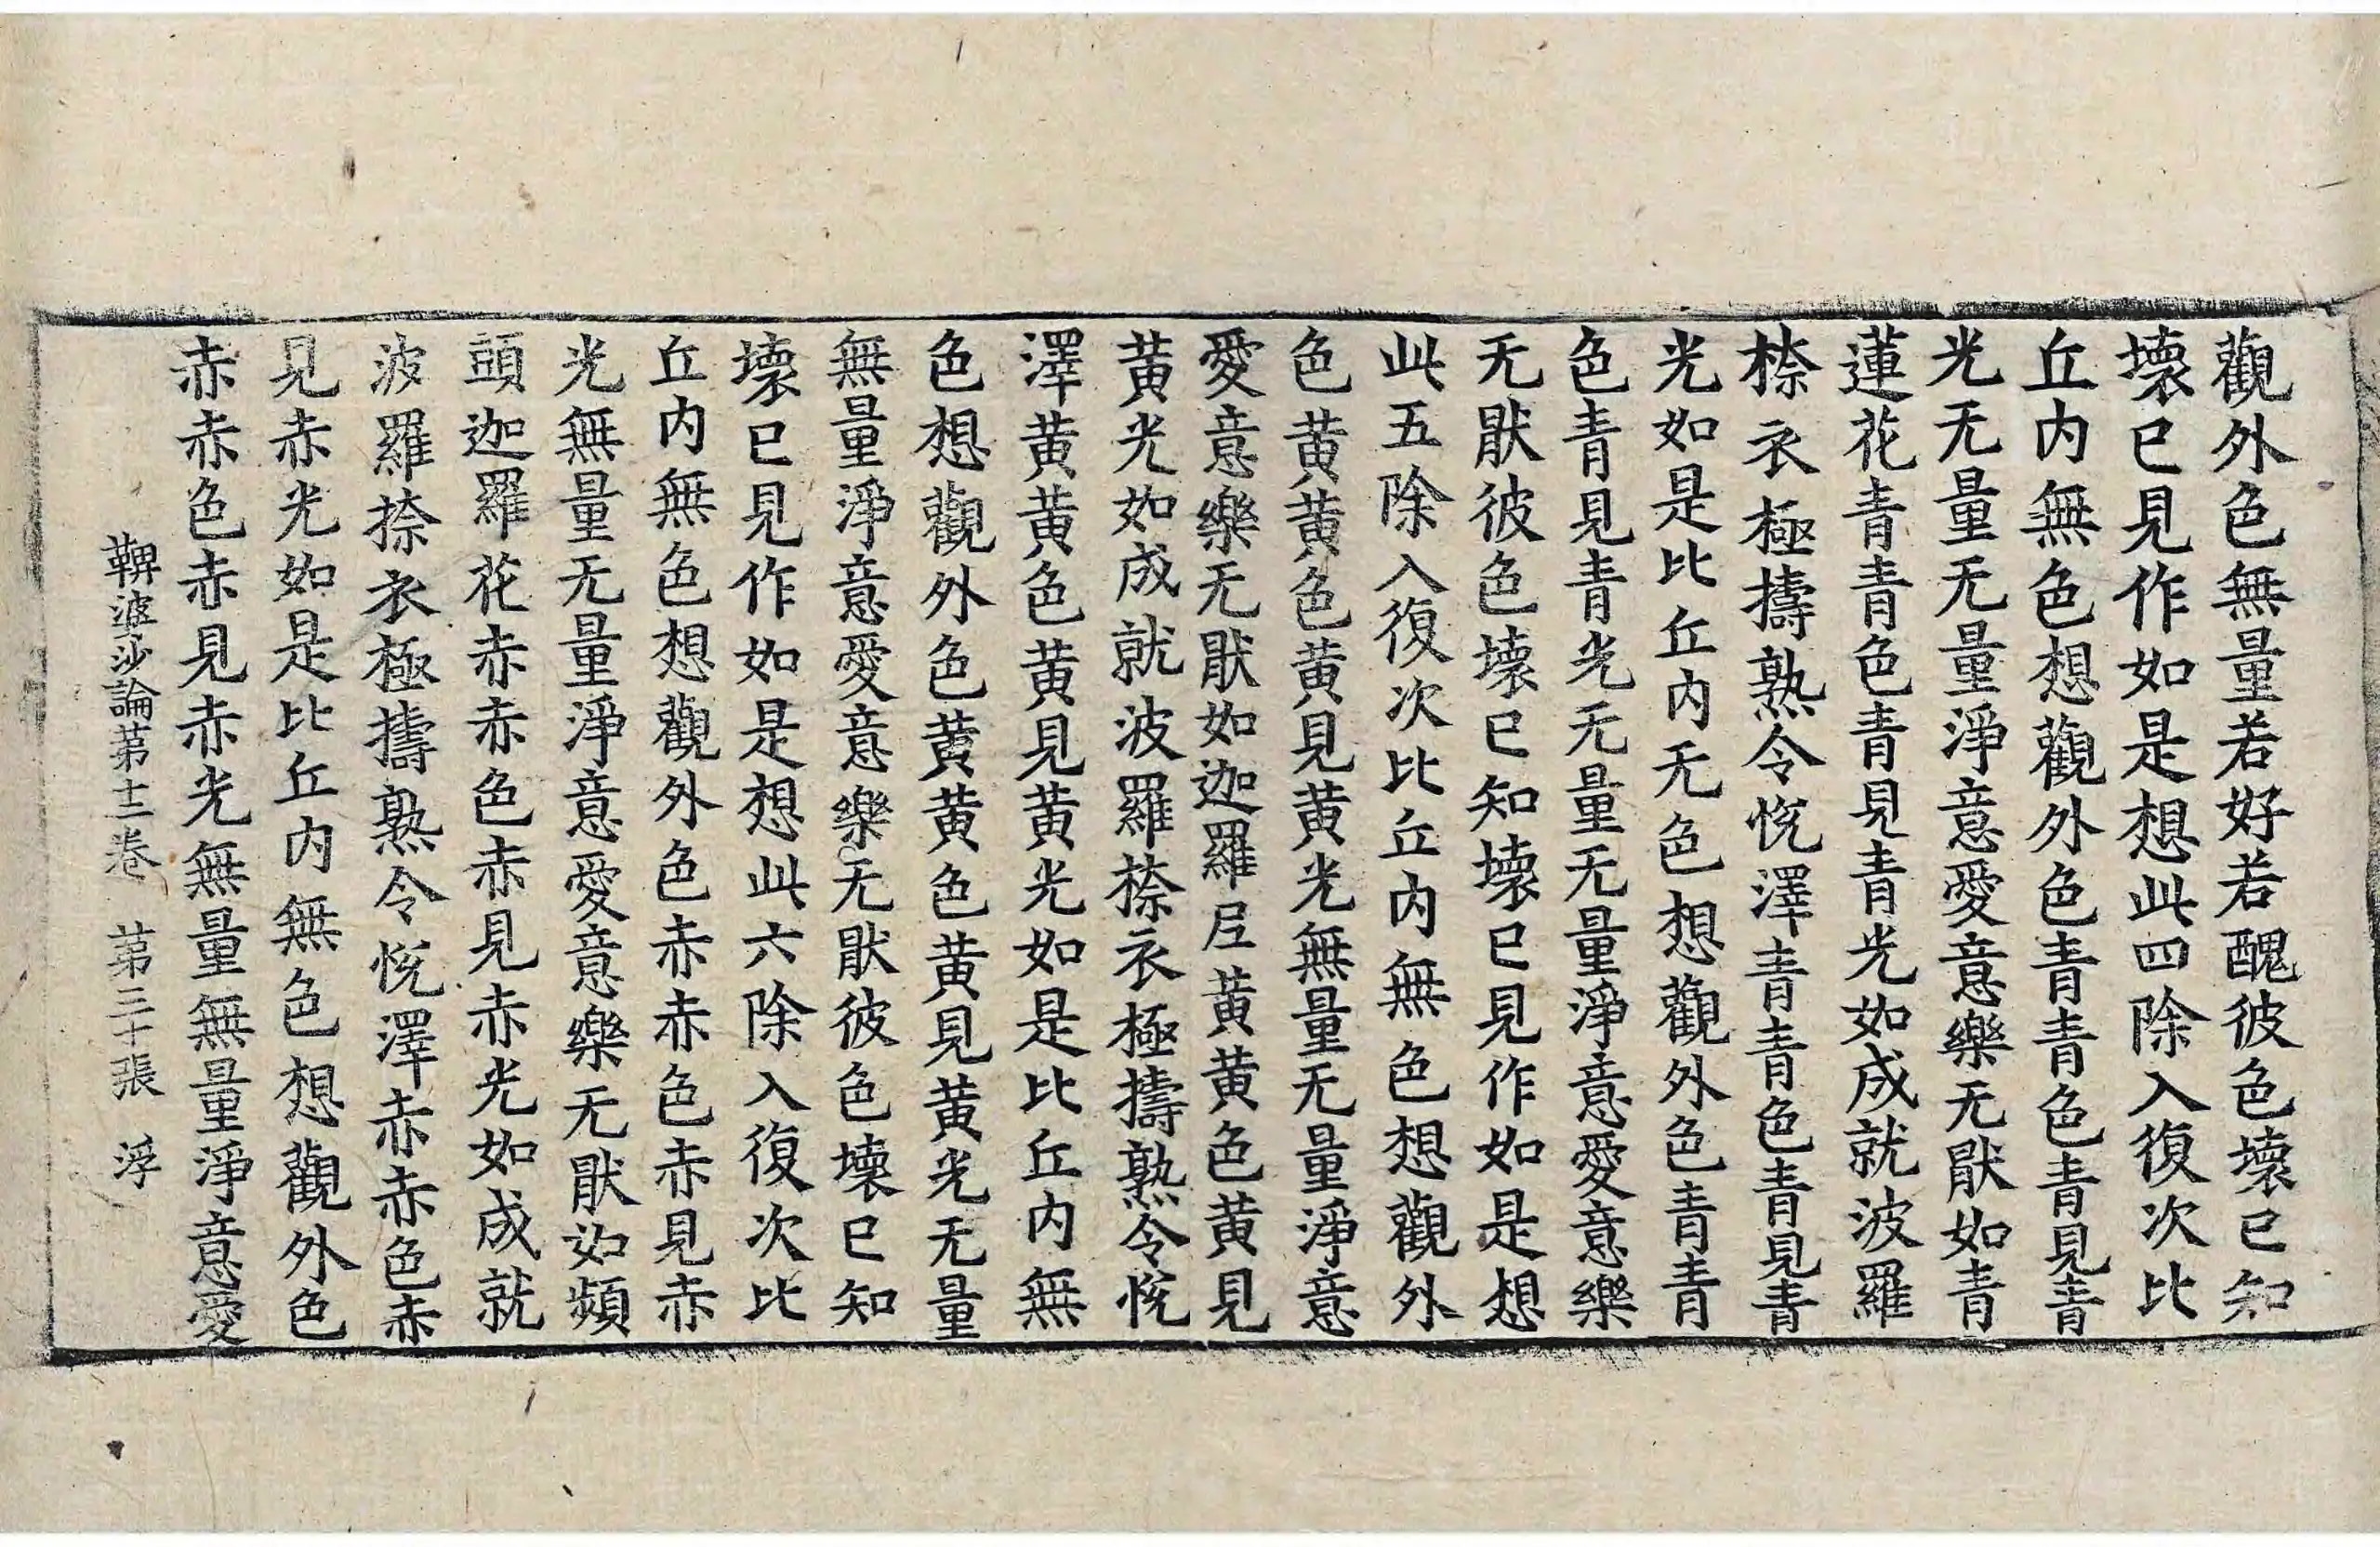 觀外色無量若好若醜彼色壞已知
壞已見作如是想此四除入復次比
丘内無色想觀外色青青色青見青
光无量无量淨意愛意樂无猒如青
蓮花青青色青見青光如成就波羅
㮈衣極擣熟令悅澤青青色青見青
光如是比丘内无色想觀外色青青
色青見青光无量无量淨意愛意樂
无猒彼色壞已知壞已見作如是想
此五除入復次比丘内無色想觀外
色黄黄色黄見黄光無量无量淨意
愛意樂无猒如迦羅尼黄黄色黄見
黄光如成就波羅㮈衣極擣熟令悅
澤黄黄色黄見黄光如是比丘内無
色想觀外色黄黄色黄見黄光无量
無量淨意愛意樂无猒彼色壞已知
壞已見作如是想此六除入復次比
丘内無色想觀外色赤赤色赤見赤
光無量无量淨意愛意樂无猒如頻
頭迦羅花赤赤色赤見赤光如成就
波羅捺衣極擣熟令悅澤赤赤色赤
見赤光如是比丘内無色想觀外色
赤赤色赤見赤光無量無量淨意愛
鞞婆沙論第十二卷　第三十張　浮